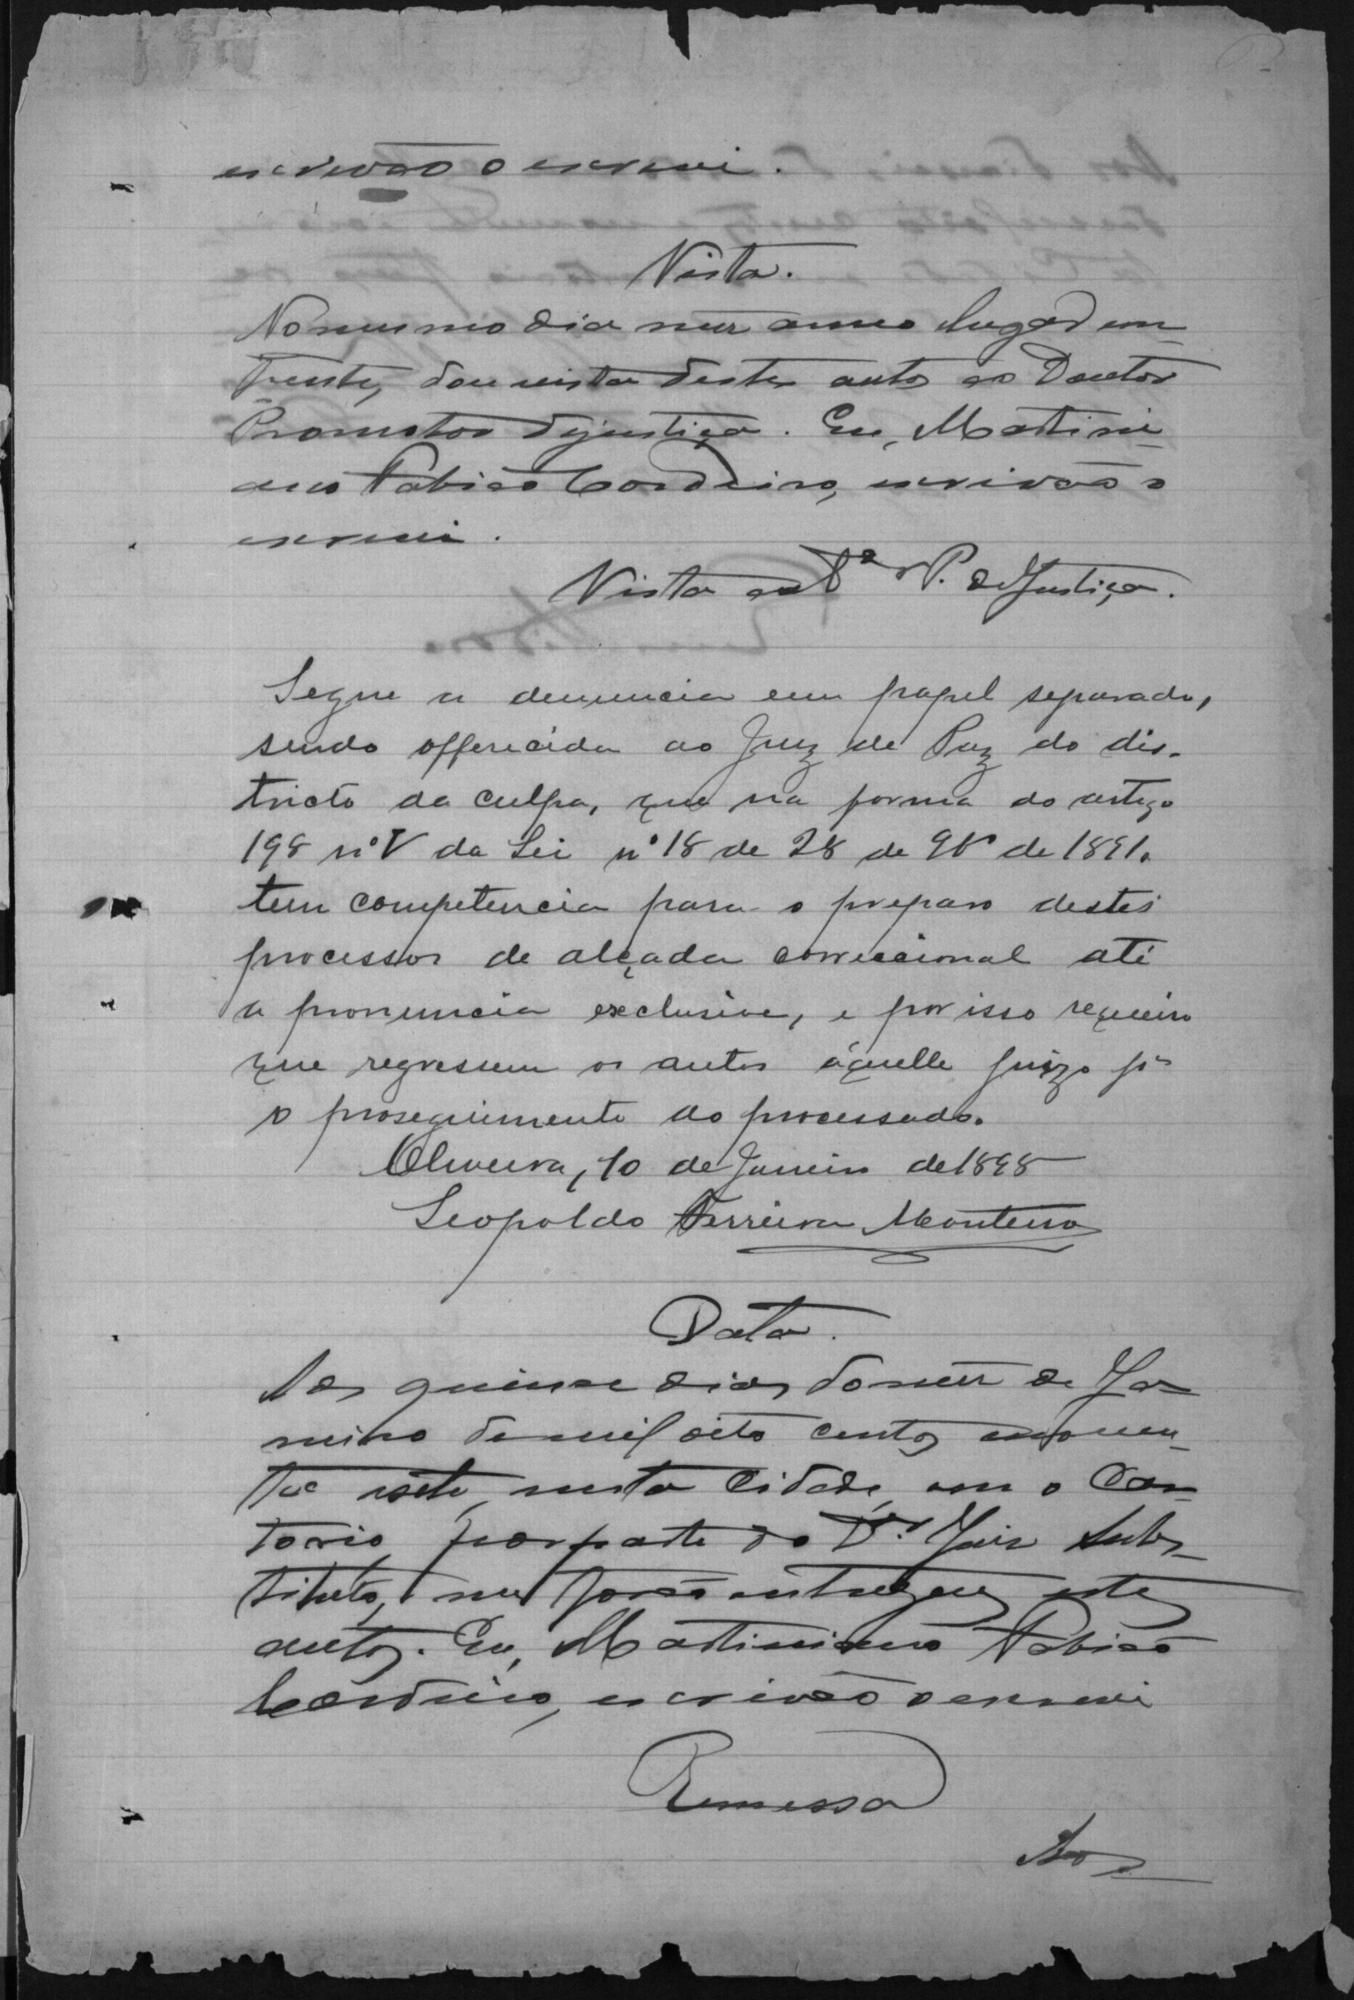 escrivão o escrevi.
Vista.
No mesmo dia mez anno e lugar em
frente, dou vista destes autos ao Doutor
Promotor de justiça. Eu, Martini
ano Fabião Cordeiro, escrivão o
escrevi.
Vista ao Dr P. de Justiça.
Segue a denuncia em papel separado,
sendo offerecida ao Juiz de Paz do dis-
tricto da culpa, que na forma do artigo
198 nº V da Lei nº 18 de 28 de 9br de 1891.
tem competencia para o preparo destes
processos de alçada correccional até
a pronuncia exclusive, e por isso requeiro
que regressem os autos áquelle juizo pª
o proseguimento do processado.
Oliveira, 10 de Janeiro de 1898
Leopoldo Ferreira Monteiro
Data.
Aos quinse dias do mez de Ja-
neiro de mil oito centos e noven-
ta e sete, nesta Cidade, em o Car-
torio, por parte do Dr. Juiz Subs-
tituto, me forão entregues estes
autos. Eu, Martiniano Fabião
Cordeiro, escrivão o escrevi
Remessa
Aos